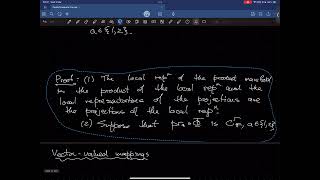 a ∈ {1,2}.
Proof: (1) The local repⁿ of the product manifold
is the product of the local repⁿ and the
local representatives of the projections are
the projections of the local repⁿ.
(2) Suppose that prₐ∘Φ is Cʳ, a∈{1,2}
Vector-valued mappings